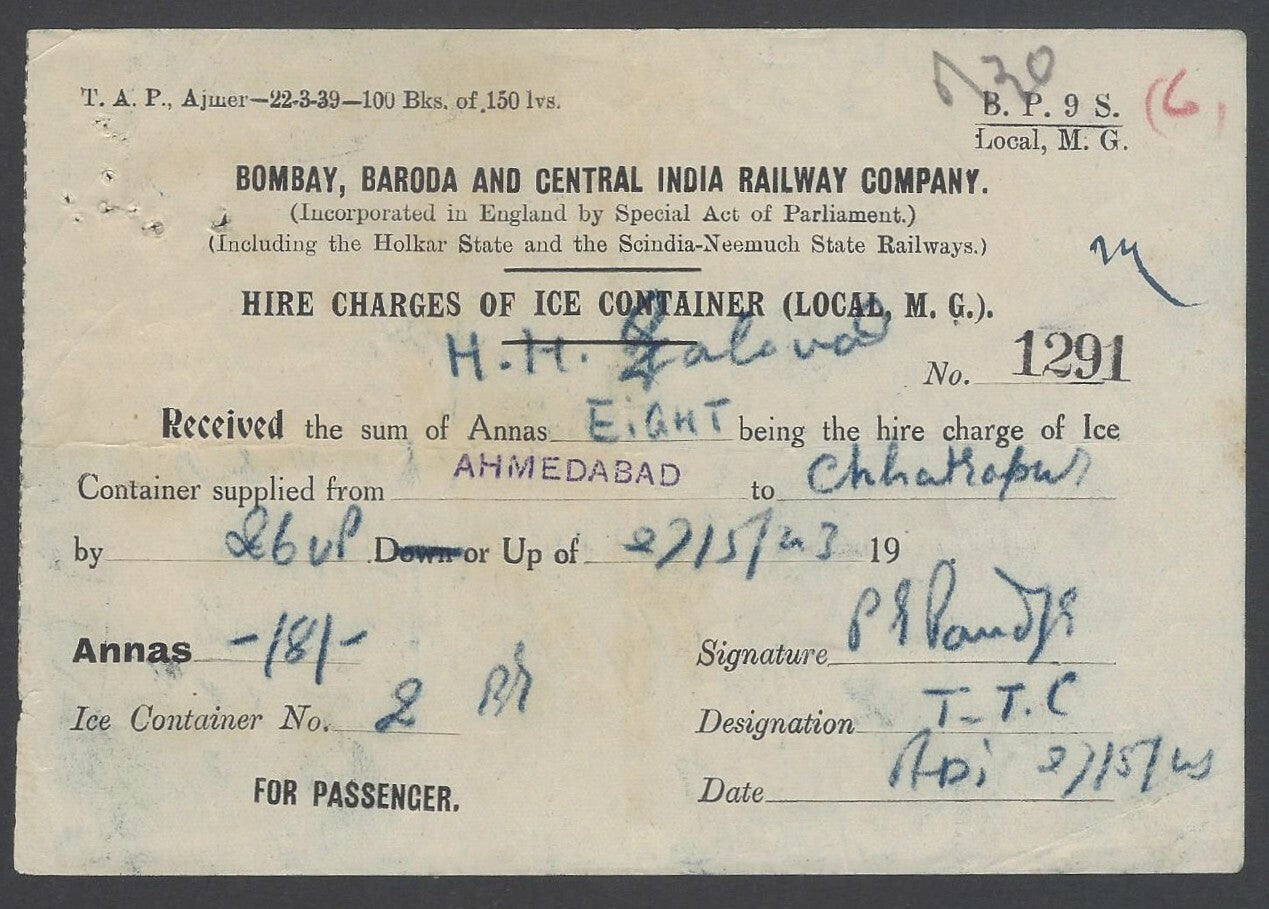 T. A. P., Ajmer—22-3-39—100 Bks. of 150 lvs.
B. P. 9 S.
Local, M. G.
(6)
BOMBAY, BARODA AND CENTRAL INDIA RAILWAY COMPANY.
(Incorporated in England by Special Act of Parliament.)
(Including the Holkar State and the Scindia-Neemuch State Railways.)
HIRE CHARGES OF ICE CONTAINER (LOCAL, M. G.).
H. H.
No. 1291
Received the sum of Annas EIGHT being the hire charge of Ice
Container supplied from AHMEDABAD to
by 26 UP Down or Up of 27/5/43 19
Annas -/8/-
Signature
Ice Container No. 2
Designation T.T.C
FOR PASSENGER.
Date ADI 27/5/43